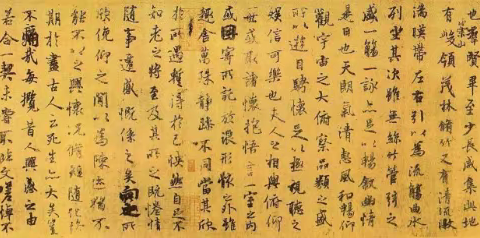 也羣賢畢至少長咸集此地
有崇山峻領茂林脩竹又有清流激
湍暎帶左右引以為流觴曲水
列坐其次雖無絲竹管弦之
盛一觴一詠亦足以暢叙幽情
是日也天朗氣清惠風和暢仰
觀宇宙之大俯察品類之盛
所以遊目騁懷足以極視聽之
娛信可樂也夫人之相與俯仰
一世或取諸懷抱悟言一室之內
或因寄所託放浪形骸之外雖
趣舍萬殊靜躁不同當其欣
於所遇暫得於己怏然自足不
知老之將至及其所之既惓情
隨事遷感慨係之矣向之所
欣俛仰之間以為陳迹猶不
能不以之興懷況脩短隨化終
期於盡古人云死生亦大矣豈
不痛哉每攬昔人興感之由
若合一契未嘗不臨文嗟悼不